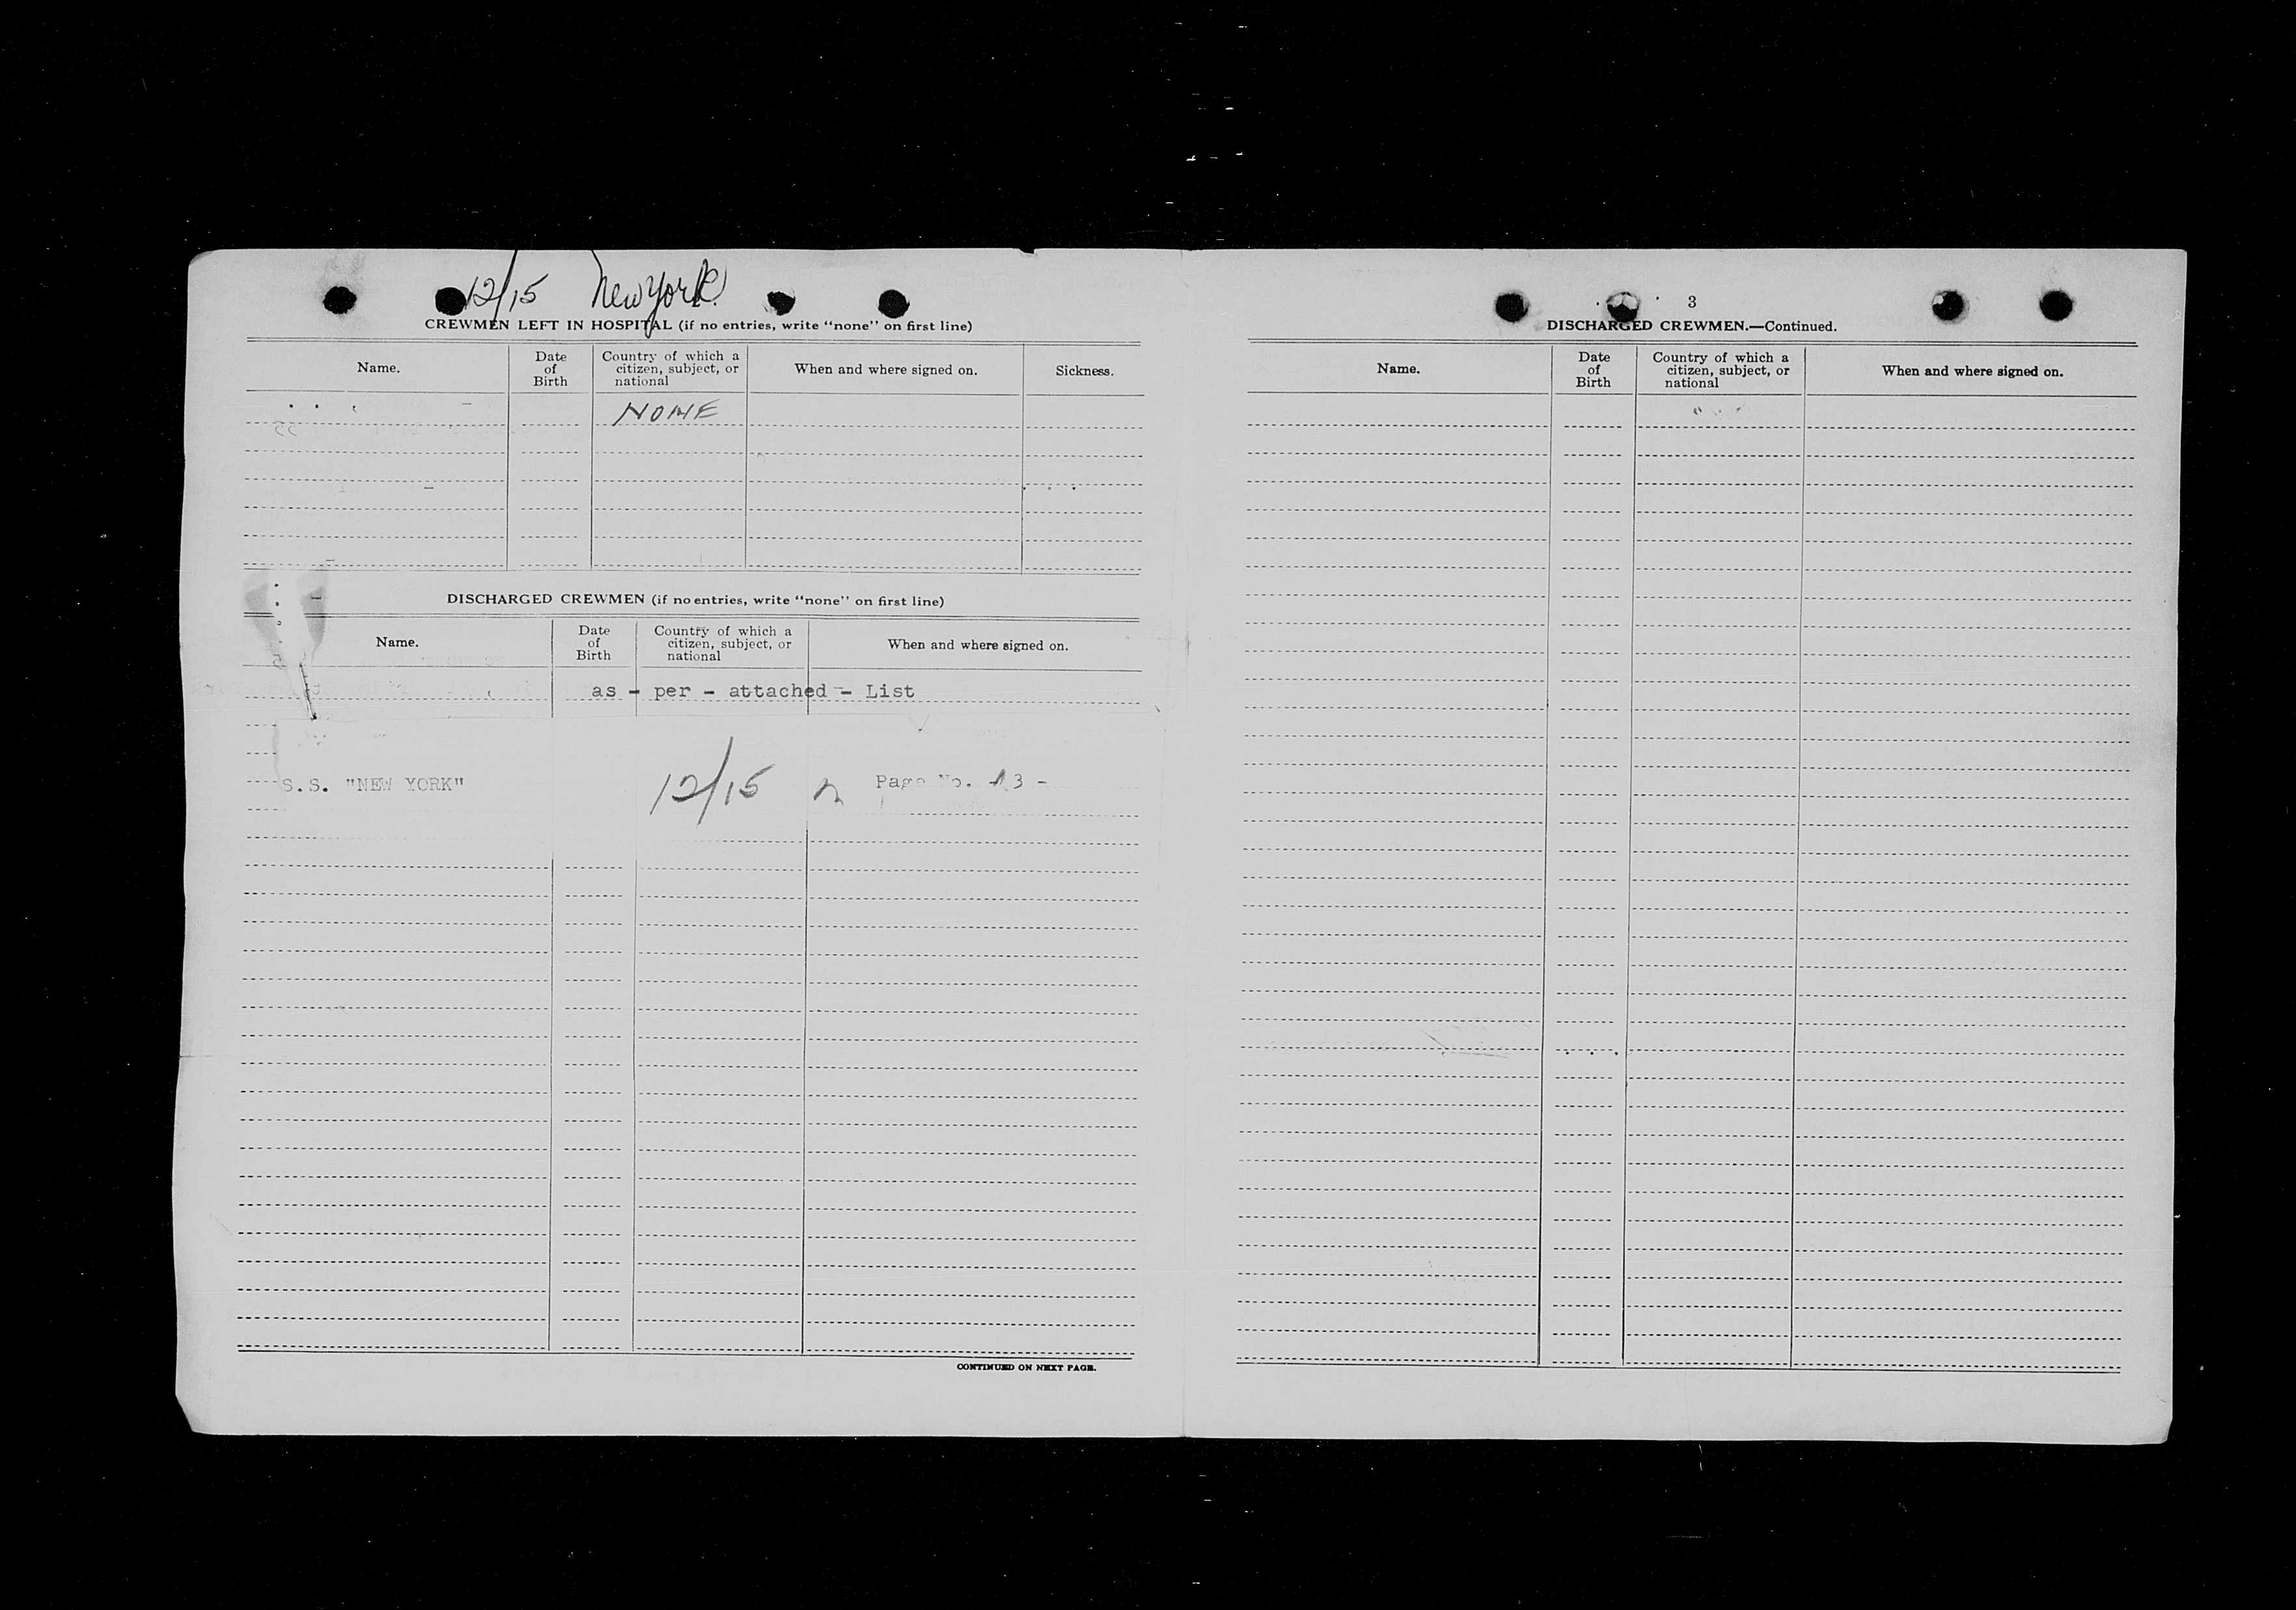 12/15 New York
CREWMEN LEFT IN HOSPITAL (if no entries, write “none” on first line)
Name. Date of Birth Country of which a citizen, subject, or national When and where signed on. Sickness.
NONE
DISCHARGED CREWMEN (if no entries, write “none” on first line)
Name. Date of Birth Country of which a citizen, subject, or national When and where signed on.
as - per - attached - List
S.S. "NEW YORK" 12/15 Page No. 3 -
CONTINUED ON NEXT PAGE.
3
DISCHARGED CREWMEN.—Continued.
Name. Date of Birth Country of which a citizen, subject, or national When and where signed on.